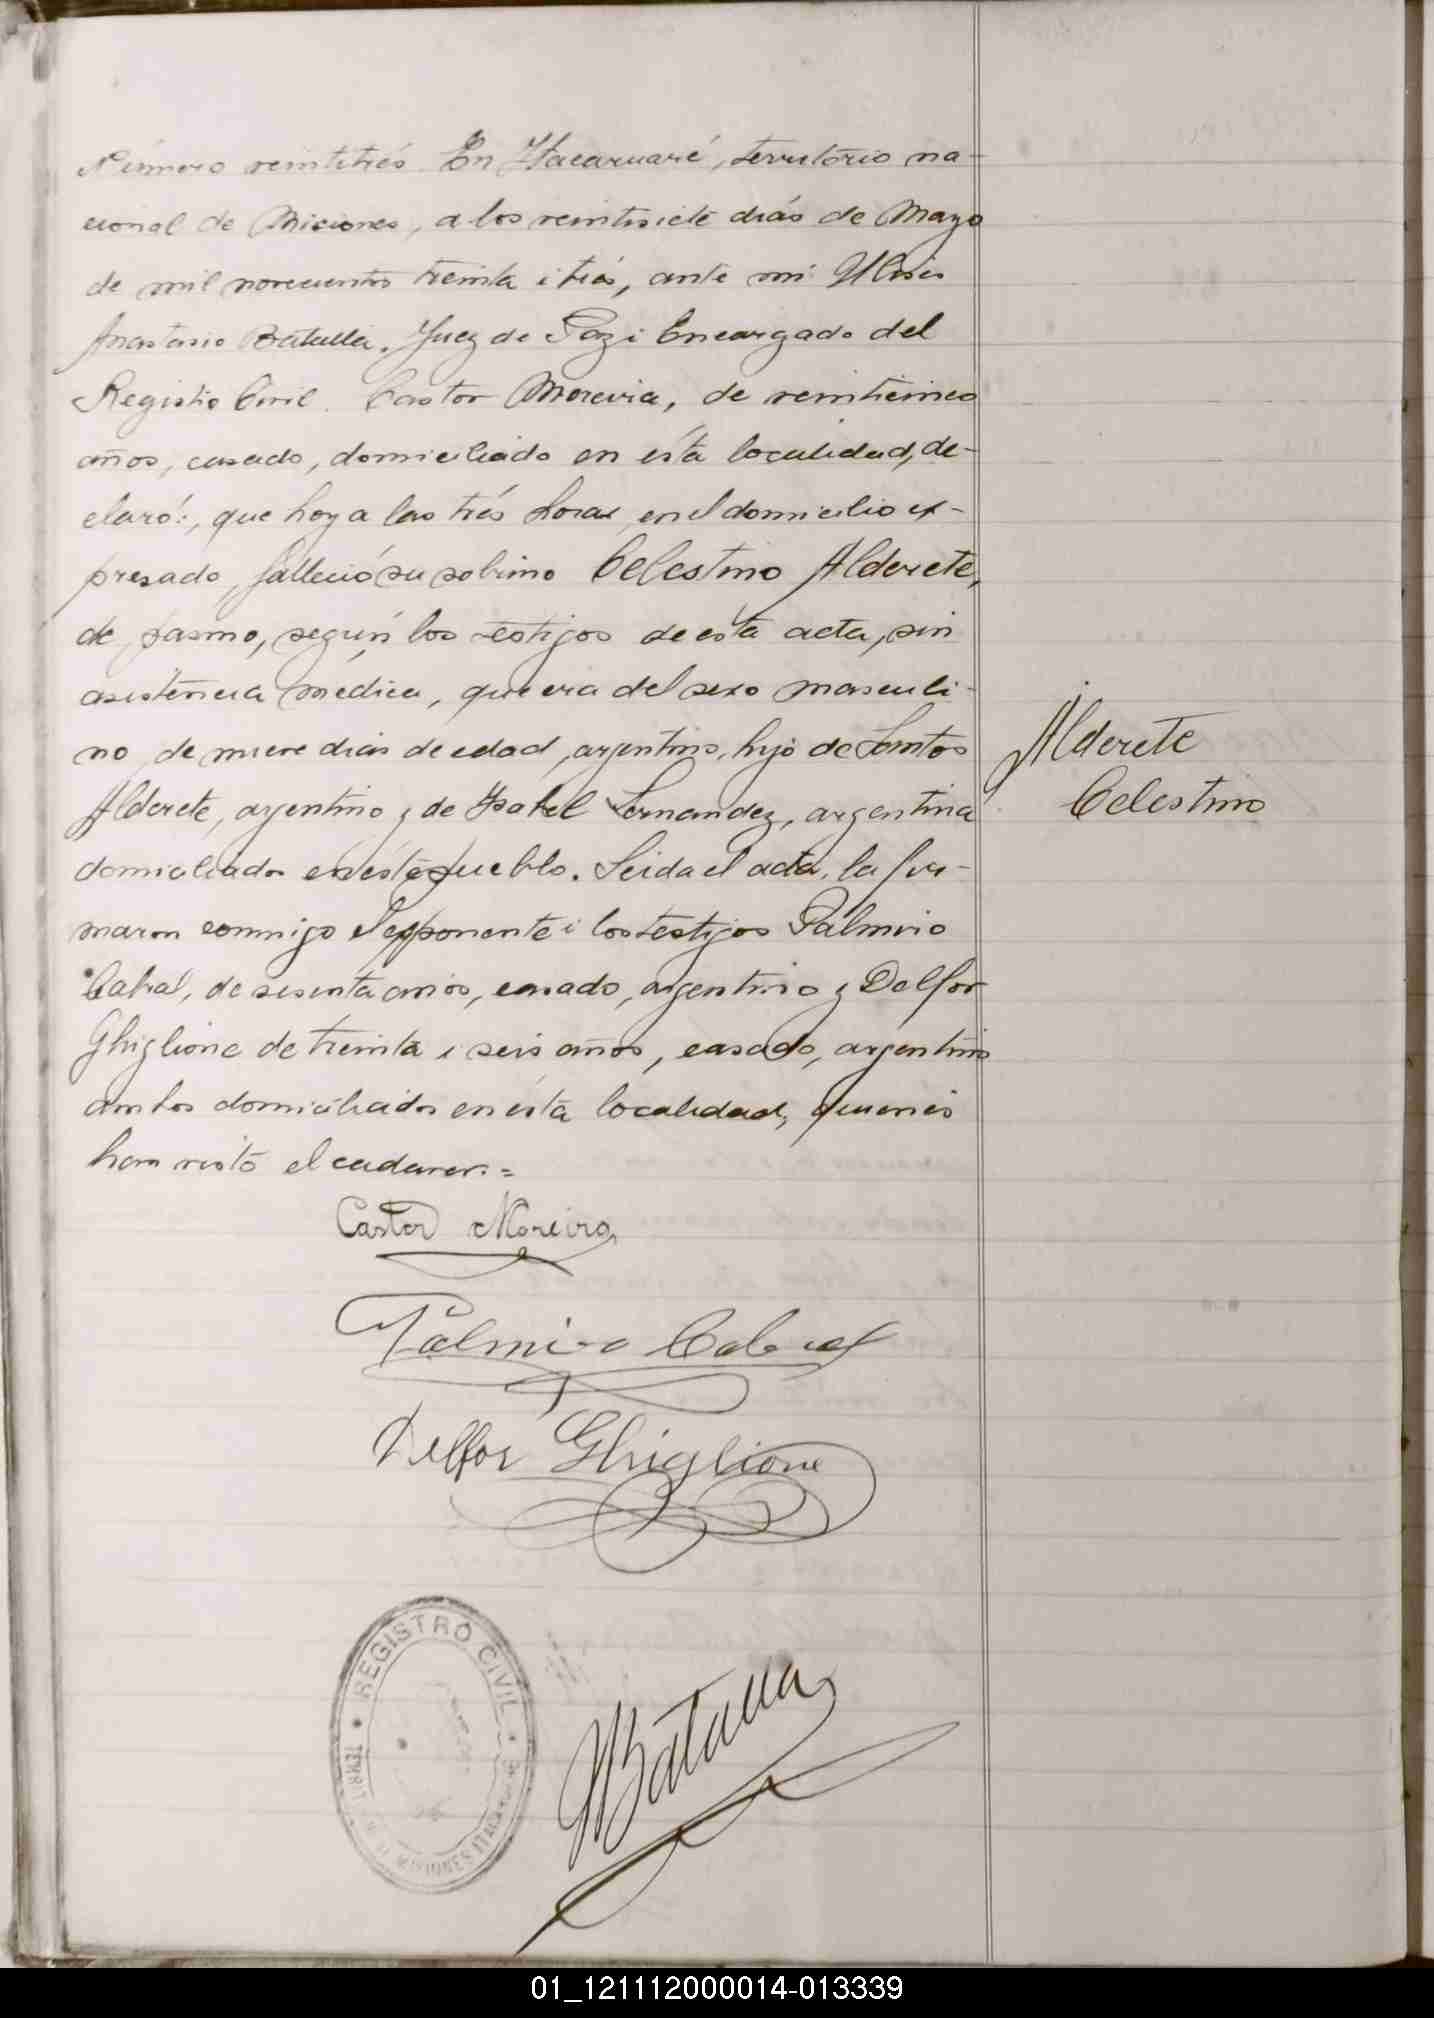 Número veintitrés. En Itacaruaré, território na-
cional de Miciones, a los veintisiete diás de Mayo
de mil novecientos treinta i trés, ante mi Ulises
Anastasio Batalla, Juez de Paz i Encargado del
Registro Civil. Castor Moreira, de veintieinco
años, casado, domiciliado en ésta localidad, de-
claró:, que hoy a las trés horas, en el domicilio ex-
presado, falleció su sobrino Celestino Alderete,
de pasmo, según los testigos de ésta acta, sin
asistencia médica, que era del sexo masculi-
no, de nueve diás de edad, argentino, hijo de Santos
Alderete, argentino y de Isabel Fernandez, argentina
domiciliados en éste pueblo. Leida el acta, la fir-
maron conmigo el esponente i los testigos Palmiro
Cabral, de sesenta años, casado, argentino y Delfor
Ghiglione de treinta i seis años, casado, argentino
ambos domiciliados en ésta localidad, quienes
han visto el cadaver.=
Alderete
Celestino
Castor Moreira
Palmiro Cabral
Delfor Ghiglione
REGISTRO CIVIL
MISIONES
Batalla
01_121112000014-013339